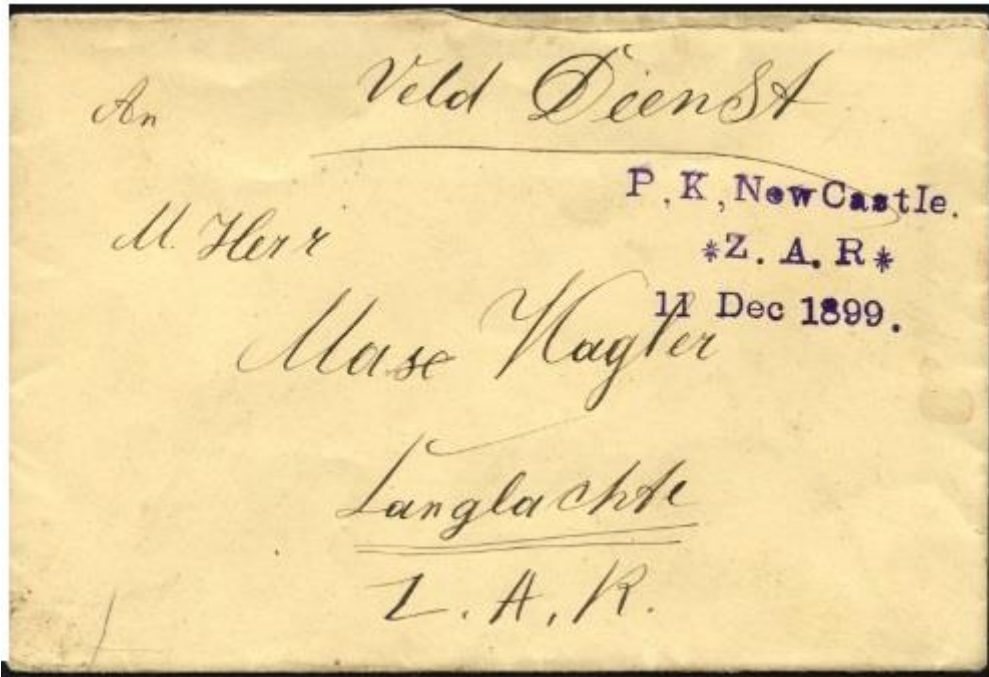 Veld Dienst
An
P, K, NewCastle.
*Z. A. R*
11 Dec 1899.
M. Herr
Max Hagler
Langlachte
Z. A. R.